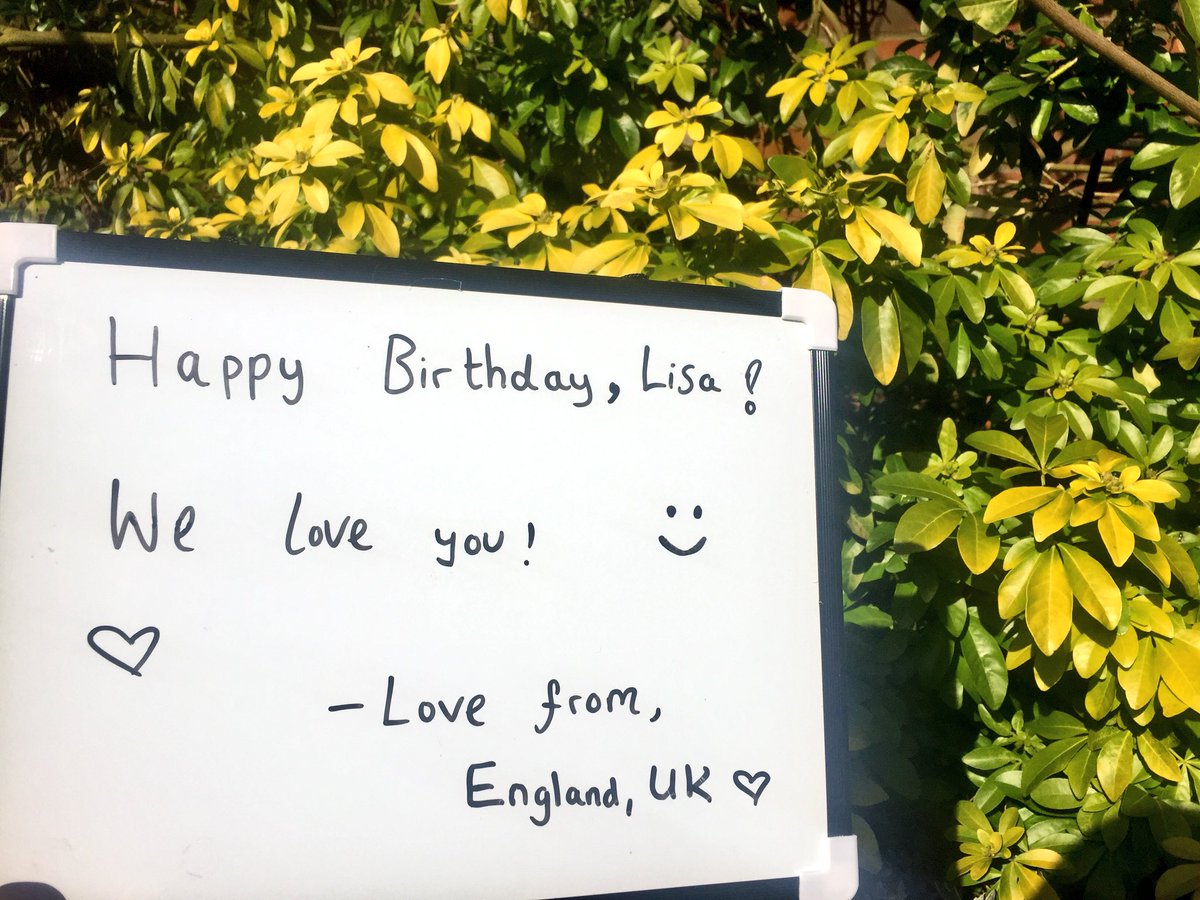 Happy Birthday, Lisa!
We love you!
- Love from,
England, UK